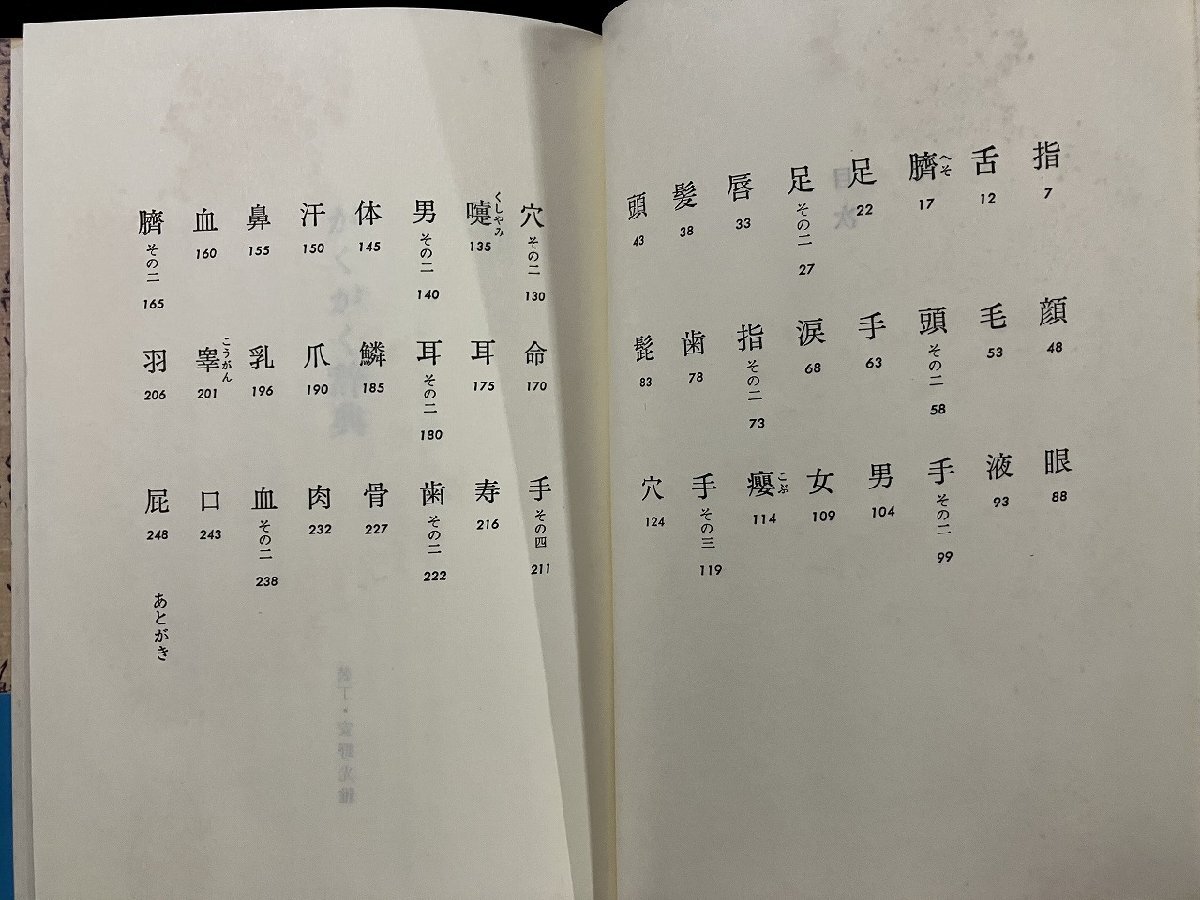 指 7
舌 12
臍 へそ 17
足 22
足 その二 27
唇 33
髪 38
頭 43
顔 48
毛 53
頭 その二 58
手 63
涙 68
指 その二 73
歯 78
髭 83
眼 88
液 93
手 その二 99
男 104
女 109
瘿 こぶ 114
手 その三 119
穴 124
穴 その二 130
嚔 くしやみ 135
男 その二 140
体 145
汗 150
鼻 155
血 160
臍 その二 165
命 170
耳 175
耳 その二 180
鱗 185
爪 190
乳 196
睾 こうがん 201
羽 206
手 その四 211
寿 216
歯 その二 222
骨 227
肉 232
血 その二 238
口 243
屁 248
あとがき